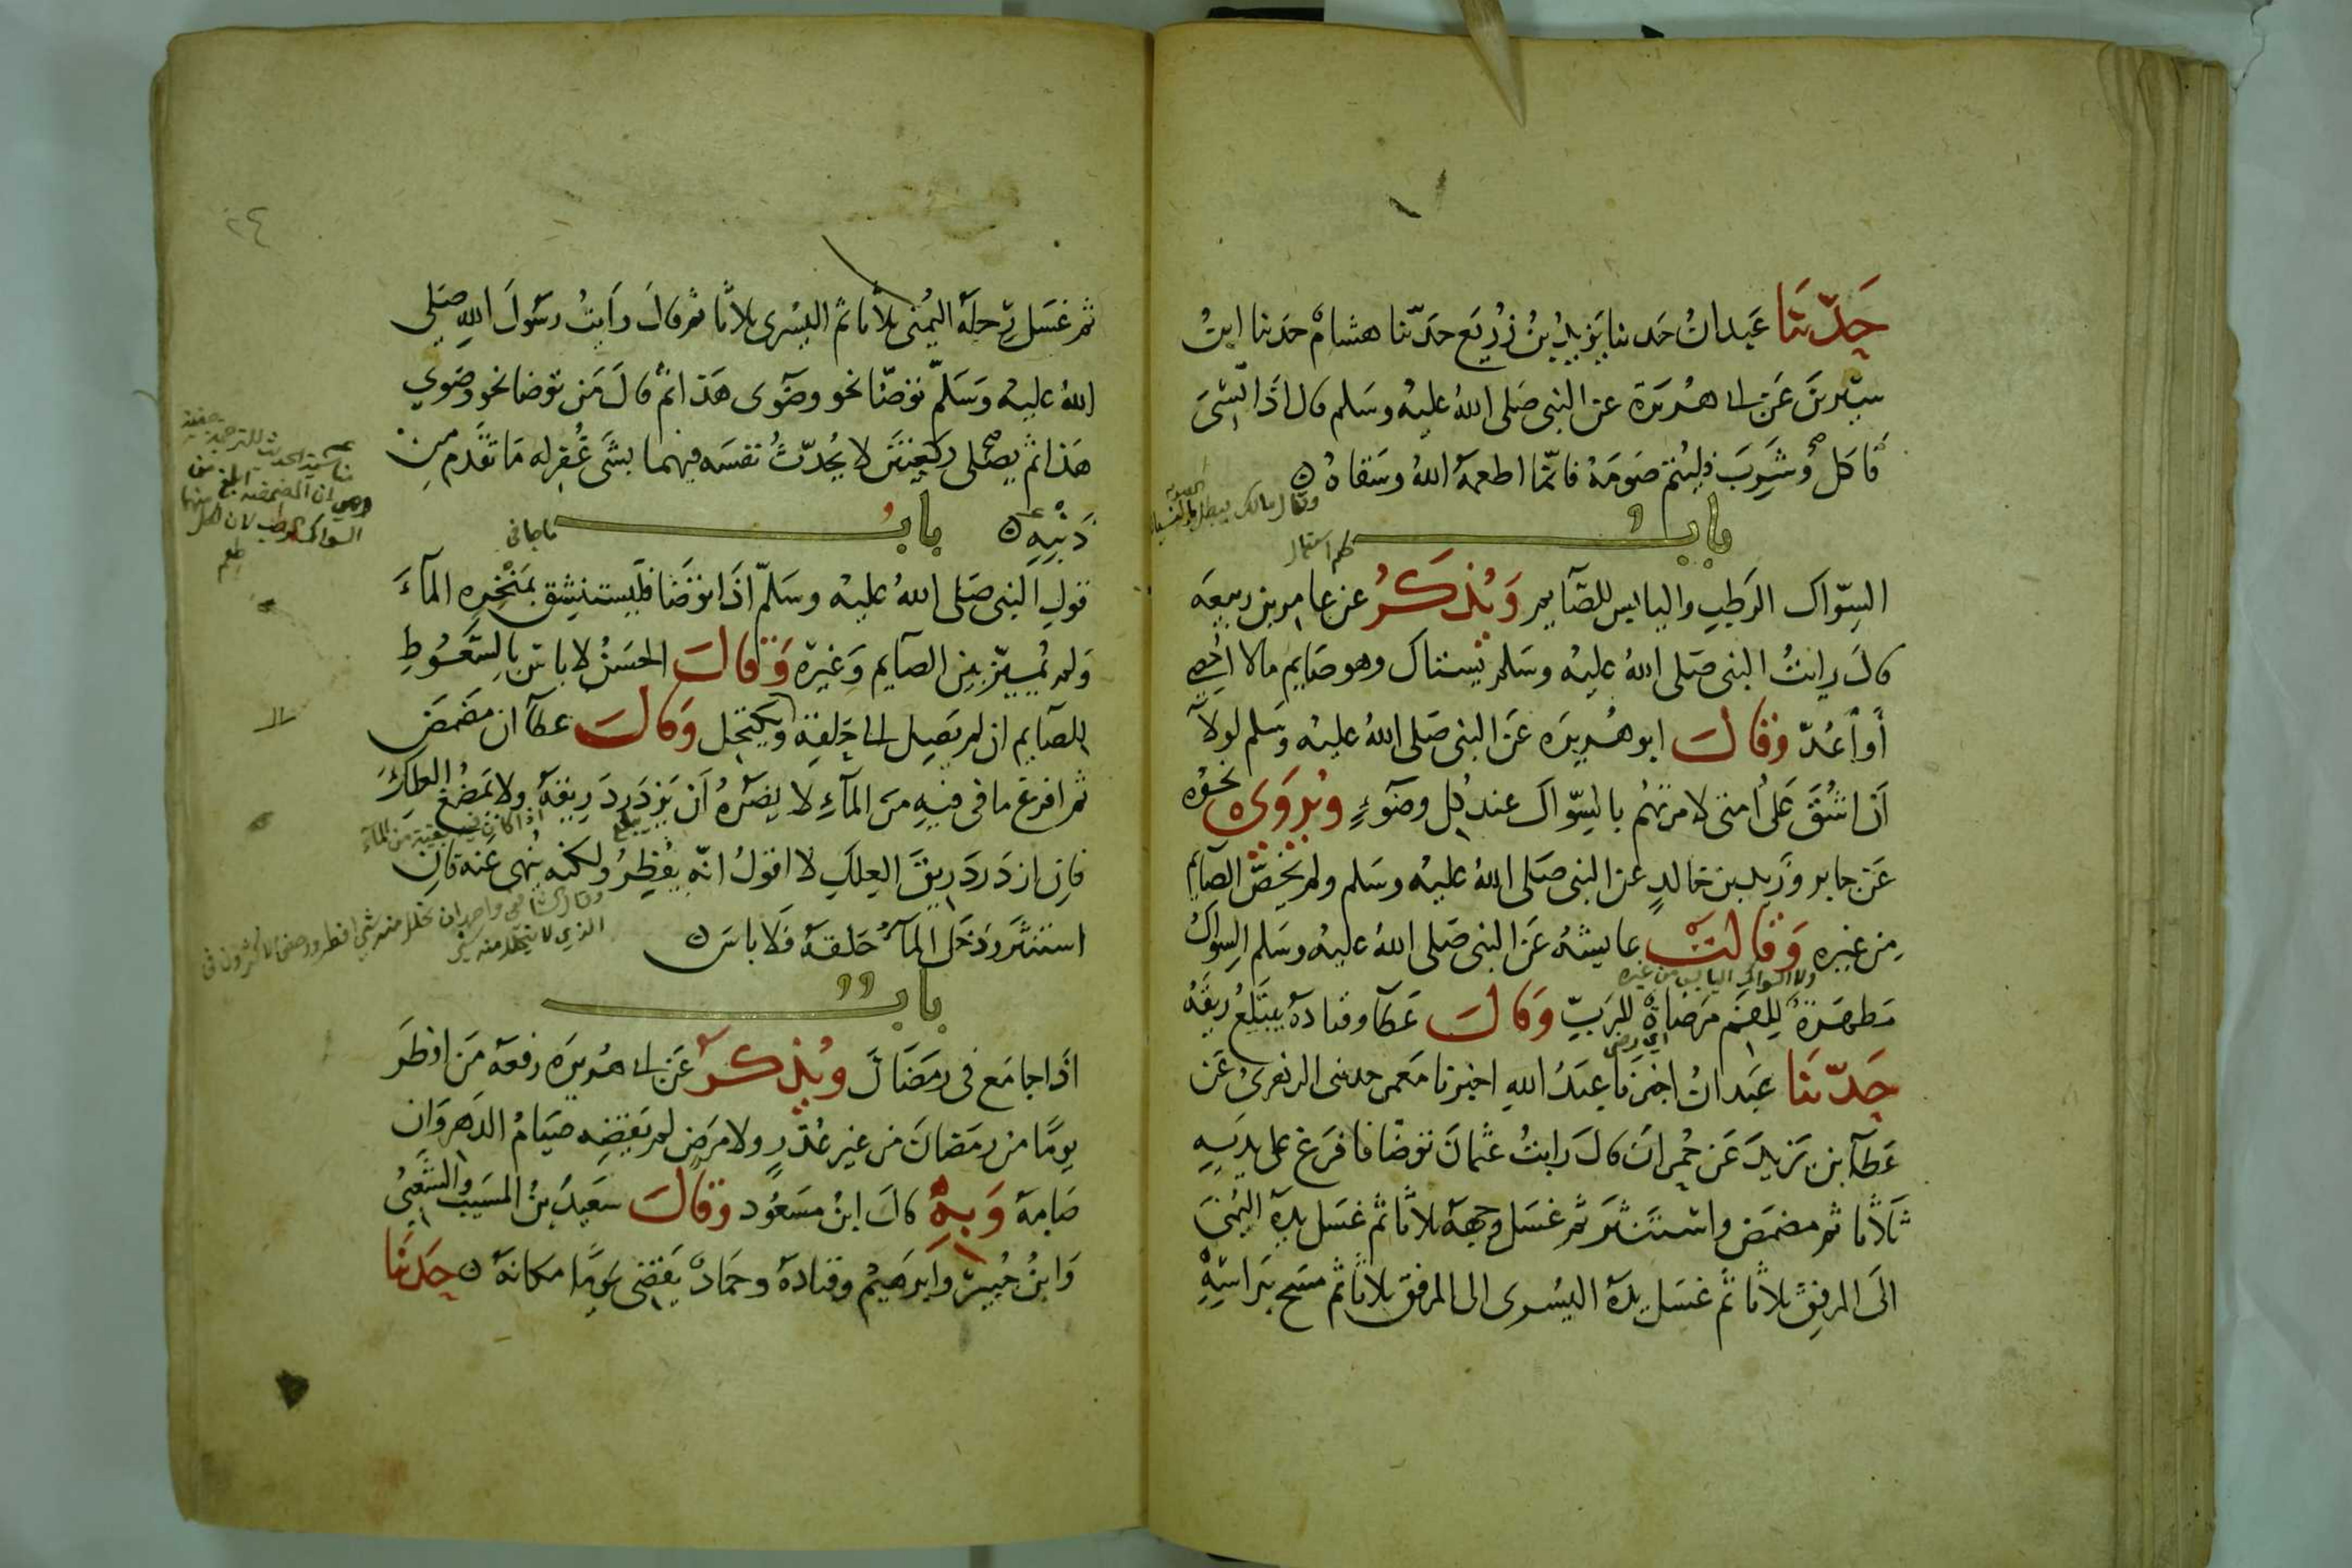 حَدّثنا عَبدانُ حَدثنا يَزيدُ بنُ زُرَيع حَدّثنا هشامٌ حَدثنا ابنُ
سيرينَ عَن ابى هُريرَة عن النبى صَلى اللهُ عليهِ وسَلم قال اذا نسِىَ
فاكلَ وشَرِبَ فليُتم صَومَهُ فانّما اطعمَهُ اللهُ وسَقاهُ
وقال مالك يبطل الصوم بالنسيان
بابُ
حكم استعمال
السِوّاك الرَطبِ واليابس للصّايم وَيُذكَرُ عن عامر بن ربيعَه
قالَ رايتُ النبى صَلى اللهُ عليهِ وسَلم يَستاك وهو صَايم مالا اُحصِى
أواَعُدّ وقالَ ابو هُريرَه عَن النبى صَلى اللهُ عليهِ وسَلم لولا
اَن اشُقَّ عَلى اُمتى لامرتهُم بالسِوّاك عند كُل وضوءٍ ويُروَى نحوُه
عَن جابر وزَيد بن خالدٍ عن النبى صَلى اللهُ عليهِ وسَلم ولم يخصَّ الصايم
مِن غيره وَقالت عايشهُ عَن النبى صَلى اللهُ عليهِ وسَلم السِواكُ
ولا السواك اليابس من غيره
مَطهَرَةٌ لِلفَم مَرضاةٌ للرَبِّ وَقالَ عَطآ وقتادهُ يبتَلعُ ريقَهُ
حَدّثنا عَبدانُ اخبرَنا عبدُ اللهِ اخبرنا مَعمر حدثنى الزهرىُ عَن
عَطآ بن يَزيدَ عَن حُمرانَ قالَ رايتُ عثمانَ توضّا فافرَغ على يديهِ
ثلاثًا ثم مضمَض واستنثر ثم غسَل وجههُ ثلاثًا ثم غسَل يدهُ اليُمنَى
الَى المرفِق ثلاثًا ثم غسَل يدهُ اليُسرى الى المرفق ثلاثًا ثم مسَح برَاسِهِ
٢٤
ثم غسَل رِجلَهُ اليُمنى ثلاثًا ثم اليسْرى ثلاثًا ثم قالَ رَايتُ رسَولَ اللهِ صَلى
اللهُ عليهِ وَسَلمّ توَضّا نحو وضُوى هَذا ثم قالَ مَن توَضا نحو وضوى
هَذا ثم يصَلى ركعتينَ لا يُحدّثُ نفسَه فيهما بشَى غُفِر له مَا تقَدم مِن
ذَنبِهِ بابُ ماجا فى
قولِ النبى صَلى اللهُ عليهِ وسَلمّ اذَا توَضّا فليستنشِق بمَنْخِرِهِ المآءَ
وَلم يُميّز بين الصآيم وَغيرهِ وَقالَ الحسَنُ لا باس بِالسَّعُوطِ
للصآيم ان لم يَصِل الى حَلقِهِ ويَكتَحِل وَقالَ عطآ ان مضمَضَ
ثم افرغ ما فى فيهِ مِنَ المآءِ لا يضرُهُ اَن يَزدَرِدَ ريقَهُ ولا يَمضُغ العلِكَ
يبلع
فانِ ازدَرَدَ ريقَ العِلكِ لا اقولُ انّه يُفطِرُ ولكنه يُنهى عَنه فانِ
استَنثَر ودَخَل المآءُ حَلقهُ فَلا باسَ
بابُ
اذَا جامَع فى رمَضَانَ ويُذكَرُ عَن ابى هُريرَه رفعَهُ مَن افطَرَ
يومًا من رمَضانَ من غيرِ عُذرٍ ولا مرَضٍ لم يَقضِه صيَامُ الدَهر وَان
صَامهُ وَبهِ قالَ ابنُ مسَعُود وقالَ سَعيدُ بنُ المسَيب والشَّعبىُ
وَابنُ جُبيرٍ وابرَهيمُ وقتادهُ وحمَادٌ يقضِى يَومًا مكانهُ حَدثنَا
مناسبة الحديث للترجمة خفية
وهى ان المضمضة ابلغ من
السواك الرطب لان لكل منها
طعم
اذا كان فى فيه بقية من المآء